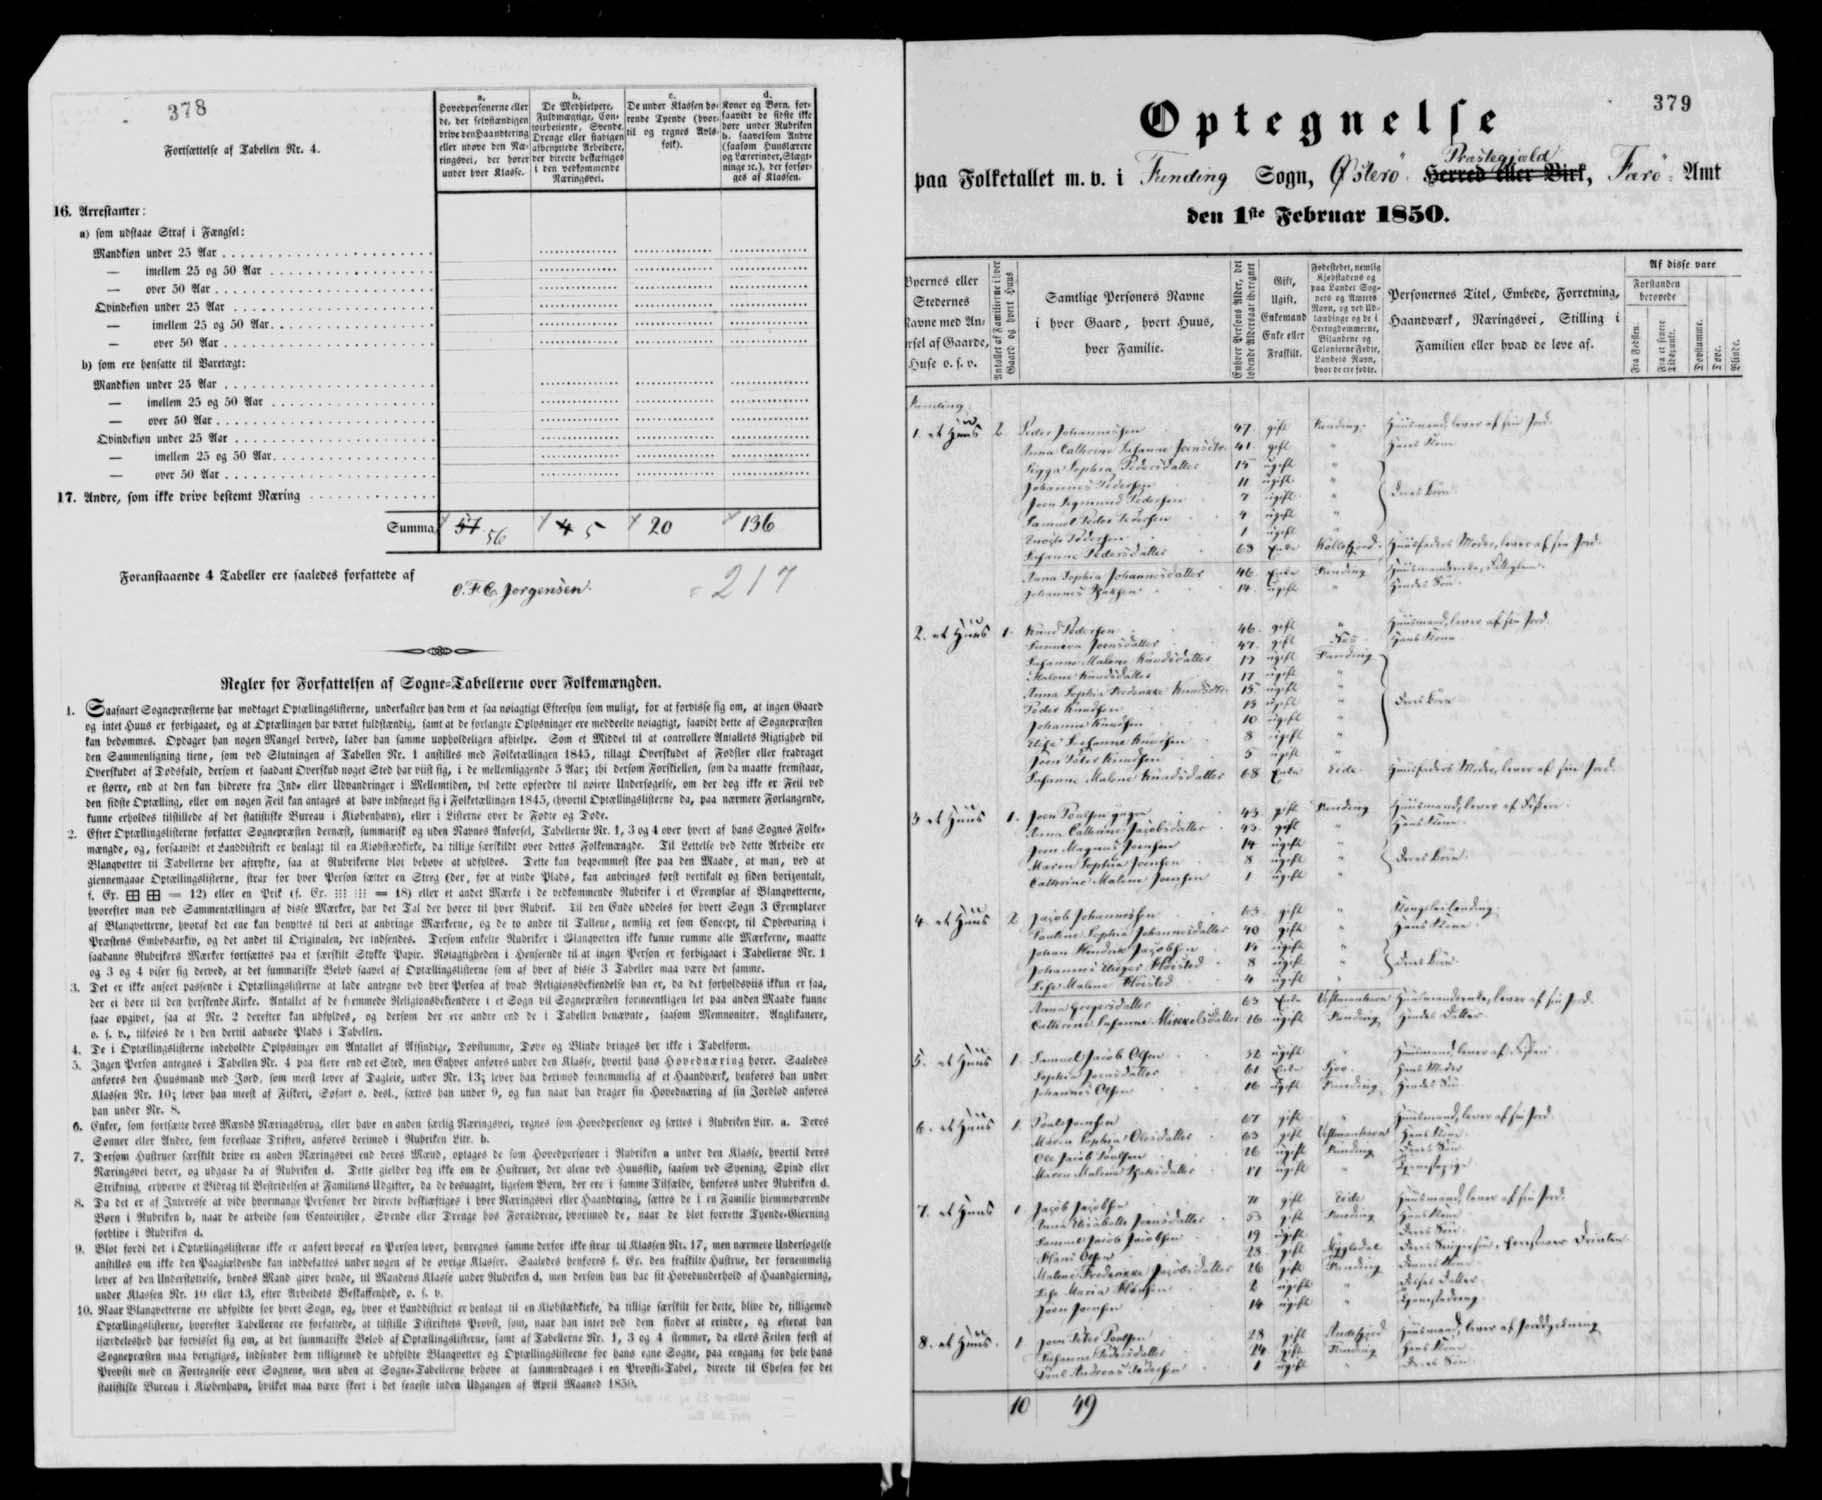 378
Fortsættelse af Tabellen Nr. 4.
a.
Hovedpersonerne eller
de, der selvstændigen
drive den Haandtering
eller udøve den Næ-
ringsvei, der hører
under hver Klasse.
b.
De Medhielpere,
Fuldmægtige, Con-
toirbetiente, Svende,
Drenge eller stadigen
afbenyttede Arbeidere,
der directe beskæftiges
i den vedkommende
Næringsvei.
c.
De under Klassen hø-
rende Tyende (hvor-
til og regnes Avls-
folk).
d.
Koner og Børn, for-
saavidt de sidste ikke
høre under Rubriken
b. saavelsom Andre
(saasom Huuslærere
og Lærerinder, Slægt-
ninge ꝛc.), der forsør-
ges af Klassen.
16. Arrestanter:
a) som udstaae Straf i Fængsel:
Mandkiøn under 25 Aar
— imellem 25 og 50 Aar
— over 50 Aar
Qvindekiøn under 25 Aar
— imellem 25 og 50 Aar
— over 50 Aar
b) som ere hensatte til Varetægt:
Mandkiøn under 25 Aar
— imellem 25 og 50 Aar
— over 50 Aar
Qvindekiøn under 25 Aar
— imellem 25 og 50 Aar
— over 50 Aar
17. Andre, som ikke drive bestemt Næring
Summa 57 56 4 5 20 136
Foranstaaende 4 Tabeller ere saaledes forfattede af
C. F. C. Jorgensen.
= 217
Regler for Forfattelsen af Sogne-Tabellerne over Folkemængden.
1. Saasnart Sognepræsterne har modtaget Optællingslisterne, underkaster han dem et saa nøiagtigt Eftersyn som muligt, for at forvisse sig om, at ingen Gaard
og intet Huus er forbigaaet, og at Optællingen har været fuldstændig, samt at de forlangte Oplysninger ere meddeelte nøiagtigt, saavidt dette af Sognepræsten
kan bedømmes. Opdager han nogen Mangel derved, lader han samme uopholdeligen afhielpe. Som et Middel til at controllere Antallets Rigtighed vil
den Sammenligning tiene, som ved Slutningen af Tabellen Nr. 1 anstilles med Folketællingen 1845, tillagt Overskudet af Fødsler eller fradraget
Overskudet af Dødsfald, dersom et saadant Overskud noget Sted har viist sig, i de mellemliggende 5 Aar; thi dersom Forskiellen, som da maatte fremstaae,
er større, end at den kan hidrøre fra Ind- eller Udvandringer i Mellemtiden, vil dette opfordre til nøiere Undersøgelse, om der dog ikke er Feil ved
den sidste Optælling, eller om nogen Feil kan antages at have indsneget sig i Folketællingen 1845, (hvortil Optællingslisterne da, paa nærmere Forlangende,
kunne erholdes tilstillede af det statistiske Bureau i Kiøbenhavn), eller i Listerne over de Fødte og Døde.
2. Efter Optællingslisterne forfatter Sognepræsten dernæst, summarisk og uden Navnes Anførsel, Tabellerne Nr. 1, 3 og 4 over hvert af hans Sognes Folke-
mængde, og, forsaavidt et Landdistrikt er henlagt til en Kiøbstædkirke, da tillige særskildt over dettes Folkemængde. Til Lettelse ved dette Arbeide ere
Blanqvetter til Tabellerne her aftrykte, saa at Rubrikerne blot behøve at udfyldes. Dette kan beqvemmest skee paa den Maade, at man, ved at
giennemgaae Optællingslisterne, strax for hver Person sætter en Streg (der, for at vinde Plads, kan anbringes først vertikalt og siden horizontalt,
f. Ex. ⊞ ⊞ = 12) eller en Prik (f. Ex. ⋮⋮⋮ ⋮⋮⋮ = 18) eller et andet Mærke i de vedkommende Rubriker i et Exemplar af Blanqvetterne,
hvorefter man ved Sammentællingen af disse Mærker, har det Tal der hører til hver Rubrik. Til den Ende uddeles for hvert Sogn 3 Exemplarer
af Blanqvetterne, hvoraf det ene kan benyttes til deri at anbringe Mærkerne, og de to andre til Tallene, nemlig eet som Concept, til Opbevaring i
Præstens Embedsarkiv, og det andet til Originalen, der indsendes. Dersom enkelte Rubriker i Blanqvetten ikke kunne rumme alle Mærkerne, maatte
saadanne Rubrikers Mærker fortsættes paa et særskilt Stykke Papir. Nøiagtigheden i Henseende til at ingen Person er forbigaaet i Tabellerne Nr. 1
og 3 og 4 viser sig derved, at det summariske Beløb saavel af Optællingslisterne som af hver af disse 3 Tabeller maa være det samme.
3. Det er ikke anseet passende i Optællingslisterne at lade antegne ved hver Person af hvad Religionsbekiendelse han er, da det forholdsviis ikkun er faa,
der ei høre til den herskende Kirke. Antallet af de fremmede Religionsbekiendere i et Sogn vil Sognepræsten formeentligen let paa anden Maade kunne
faae opgivet, saa at Nr. 2 derefter kan udfyldes, og dersom der ere andre end de i Tabellen benævnte, saasom Memnoniter, Anglikanere,
o. s. v., tilføies de i den dertil aabnede Plads i Tabellen.
4. De i Optællingslisterne indeholdte Oplysninger om Antallet af Afsindige, Døvstumme, Døve og Blinde bringes her ikke i Tabelform.
5. Ingen Person antegnes i Tabellen Nr. 4 paa flere end eet Sted, men Enhver anføres under den Klasse, hvortil hans Hovednæring hører. Saaledes
anføres den Huusmand med Jord, som meest lever af Dagleie, under Nr. 13; lever han derimod fornemmelig af et Haandværk, henføres han under
Klassen Nr. 10; lever han meest af Fiskeri, Søfart o. desl., sættes han under 9, og kun naar han drager sin Hovednæring af sin Jordlod anføres
han under Nr. 8.
6. Enker, som fortsætte deres Mænds Næringsbrug, eller have en anden særlig Næringsvei, regnes som Hovedpersoner og sættes i Rubriken Litr. a. Deres
Sønner eller Andre, som forestaae Driften, anføres derimod i Rubriken Litr. b.
7. Dersom Hustruer særskilt drive en anden Næringsvei end deres Mænd, optages de som Hovedpersoner i Rubriken a under den Klasse, hvortil deres
Næringsvei hører, og udgaae da af Rubriken d. Dette gielder dog ikke om de Hustruer, der alene ved Huusflid, saasom ved Syening, Spind eller
Strikning, erhverve et Bidrag til Bestridelsen af Familiens Udgifter, da de desuagtet, ligesom Børn, der ere i samme Tilfælde, henføres under Rubriken d.
8. Da det er af Interesse at vide hvormange Personer der directe beskiæftiges i hver Næringsvei eller Haandtering, sættes de i en Familie hiemmeværende
Børn i Rubriken b, naar de arbeide som Contoirister, Svende eller Drenge hos Forældrene, hvorimod de, naar de blot forrette Tyende-Gierning
forblive i Rubriken d.
9. Blot fordi det i Optællingslisterne ikke er anført hvoraf en Person lever, henregnes samme derfor ikke strax til Klassen Nr. 17, men nærmere Undersøgelse
anstilles om ikke den Paagiældende kan indbefattes under nogen af de øvrige Klasser. Saaledes henføres f. Ex. den fraskilte Hustrue, der fornemmelig
lever af den Understøttelse, hendes Mand giver hende, til Mandens Klasse under Rubriken d, men dersom hun har sit Hovedunderhold af Haandgierning,
under Klassen Nr. 10 eller 13, efter Arbeidets Beskaffenhed, o. s. v.
10. Naar Blanqvetterne ere udfyldte for hvert Sogn, og, hvor et Landdistrict er henlagt til en Kiøbstædkirke, da tillige særskilt for dette, blive de, tilligemed
Optællingslisterne, hvorefter Tabellerne ere forfattede, at tilstille Distriktets Provst, som, naar han intet ved dem finder at erindre, og efterat han
isærdeleshed har forvisset sig om, at det summariske Beløb af Optællingslisterne, samt af Tabellerne Nr. 1, 3 og 4 stemmer, da ellers Feilen først af
Sognepræsten maa berigtiges, indsender dem tilligemed de udfyldte Blanqvetter og Optællingslisterne for hans egne Sogne, paa eengang for hele hans
Provsti med en Fortegnelse over Sognene, men uden at Sogne-Tabellerne behøve at sammendrages i en Provsti-Tabel, directe til Chefen for det
statistiske Bureau i Kiøbenhavn, hvilket maa være skeet i det seneste inden Udgangen af April Maaned 1850.
379
Optegnelse
Præstegjæld
paa Folketallet m. v. i Funding Sogn, Østerö Herred eller Birk, Færö- Amt
den 1ste Februar 1850.
Byernes eller
Stedernes
Navne med An-
førsel af Gaarde,
Huse o. s. v.
Antallet af Familierne i hver
Gaard og hvert Huus
Samtlige Personers Navne
i hver Gaard, hvert Huus,
hver Familie.
Enhver Persons Alder, det
løbende Aldersaar iberegnet
Gift,
Ugift,
Enkemand
Enke eller
Fraskilt.
Fødestedet, nemlig
Kjøbstadens og
paa Landet Sog-
nets og Amtets
Navn, og ved Ud-
lændinge og de i
Hertugdømmerne,
Bilandene og
Colonierne Fødte,
Landets Navn,
hvor de ere fødte.
Personernes Titel, Embede, Forretning,
Haandværk, Næringsvei, Stilling i
Familien eller hvad de leve af.
Af disse vare
Forstanden
berøvede
Fra Fødslen.
Fra et senere
Tidspunkt.
Døvstumme.
Døve.
Blinde.
Funding
1. et Huus 2. Peder Johannesen 47. gift Funding. Huusmand, lever af sin Jord.
Anna Cathrine Susanne Joensdtr. 41. gift " Hans Kone
Sigga Sophia Pedersdatter 15 ugift "
Johannes Pedersen 11 ugift " Deres Børn
Joen Sigmund Pedersen 7 ugift "
Samuel Peder Pedersen 4 ugift "
Pedersen 1 ugift "
Susanne Pedersdatter 68 Enke Kollefjord. Huusfaders Moder, lever af sin Jord.
Anna Sophia Johannesdatter 46. Enke Funding
Johannes 14. ugift " Hendes Søn.
2. et Huus 1. Knud Pedersen 46. gift " Huusmand, lever af sin Jord.
Sunneva Joensdatter 47. gift Næs Hans Kone
Susanne Malene Knudsdatter 19 ugift Funding
Malene Knudsdatter 17 ugift "
Anna Sophia Frederikke Knudsdtr. 15 ugift "
Peder Knudsen 13 ugift " Deres Børn
Johanne Knudsen 10 ugift "
Susanne Knudsen 8 ugift "
Joen Peter Knudsen 5 ugift "
Susanne Malene Knudsdatter 68 Enke Eide. Huusfaders Moder, lever af sin Jord.
3 et Huus 1. Joen Poulsen yngre 43. gift Funding Huusmand, lever af Fiskeri.
Anna Cathrine Jacobsdatter 43. gift " Hans Kone.
Joen Magnus Joensen 14 ugift "
Maren Sophia Joensen 8 ugift " Deres Børn.
Cathrine Malene Joensen 1 ugift "
4. et Huus 2 Jacob Johannesen 63 gift "
Pauline Sophia Johannesdatter 40 gift " Hans Kone.
Johan Hendrik Jacobsen 14 ugift "
Johannes 8 ugift " Deres Børn.
Malene 4 ugift "
Anna Gregersdatter 63 Enke Vestmanhavn Huusmandsenke, lever af sin Jord.
Cathrine Susanne Mikkelsdatter 26 ugift Funding Hendes Datter.
5. et Huus 1. Samuel Jacob Olsen 32 ugift " Huusmand, lever af Fiskeri.
Sophia Joensdatter 61 Enke Gjov. Hans Moder
Johannes Olsen 16 ugift Funding Hendes Søn
6. et Huus 1. Poul Joensen 67 gift " Huusmand, lever af sin Jord.
Maren Sophia Olesdatter 63 gift Vestmanhavn Hans Kone.
Ole Jacob Poulsen 26 ugift Funding Deres Søn
Maren Malene 17 ugift " Tjenestepige
7. et Huus 1 Jacob Jacobsen 70 gift Eide Huusmand, lever af sin Jord.
Anna Elisabeth Joensdatter 53 gift Funding Hans Kone
Samuel Jacob Jacobsen 19 ugift " Deres Søn
Hans Olsen 28 gift Deres Svigersøn, forestaaer Driften
Malene Frederikke Jacobsdatter 26 gift Funding Dennes Kone
Maria 2 ugift " Disses Datter
Joen Joensen 14 ugift " Tjenestedreng.
8. et Huus. 1 Joen Peter Poulsen 28 gift Andefjord Huusmand, lever af Jorddyrkning
Susanne Pedersdatter 24 gift Funding Hans Kone
Poul Andreas Pedersen 1 ugift " Deres Søn.
10 49